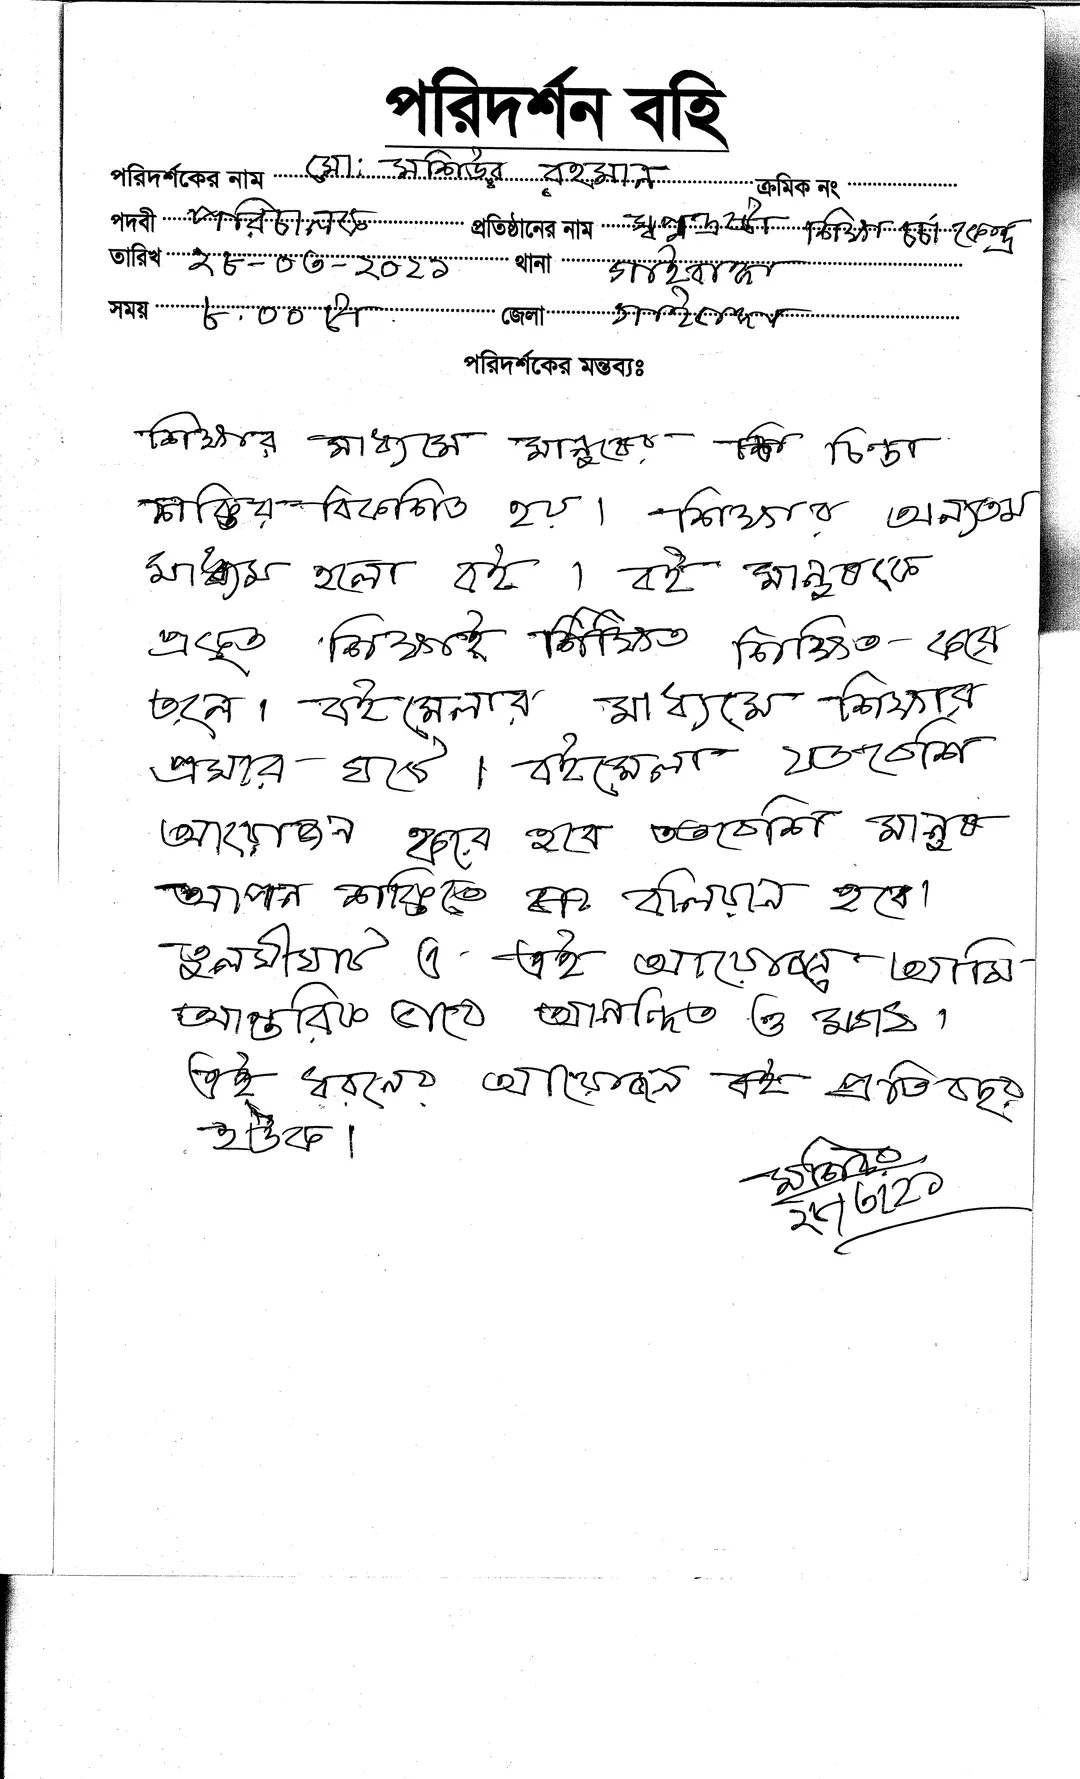 পরিদর্শন বহি
পরিদর্শকের নাম মো: মশিউর রহমান ক্রমিক নং
পদবী পরিচালক প্রতিষ্ঠানের নাম স্বপ্নদ্রষ্টা শিক্ষা চর্চা কেন্দ্র
তারিখ ২৮-০৩-২০২১ থানা গাইবান্ধা
সময় ৮.০০ জেলা গাইবান্ধা
পরিদর্শকের মন্তব্যঃ
শিক্ষার মাধ্যমে মানুষের চিন্তা
শক্তির বিকশিত হয়। শিক্ষার অন্যতম
মাধ্যম হলো বই। বই মানুষকে
প্রকৃত শিক্ষাই শিক্ষিত করে
তোলে। বইমেলার মাধ্যমে শিক্ষার
প্রসার ঘটে। বইমেলা যতবেশি
আয়োজন করে হবে ততবেশি মানুষ
আপন শক্তিতে বলিয়ান হবে।
তুলসীঘাট এ এই আয়োজনে আমি
আন্তরিক ভাবে আনন্দিত ও
এই ধরনের আয়োজন বই প্রতিবছর
হউক।
মশিউর
২৮/৩/২১